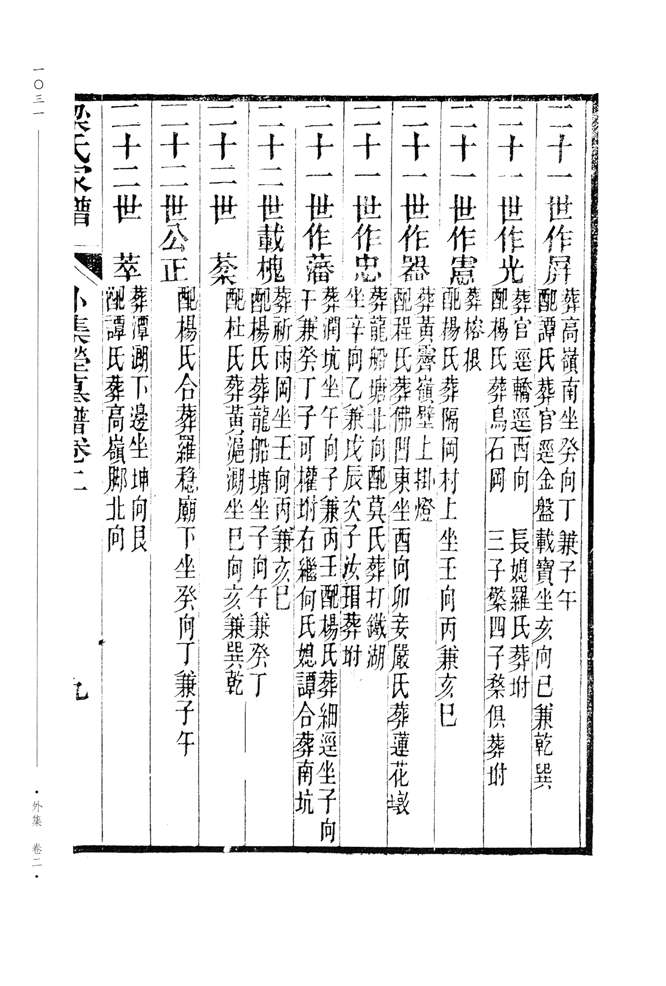 二十一世作屏
葬高嶺南坐癸向丁兼子午
配譚氏葬官逕金盤載寶坐亥向巳兼乾巽
二十一世作光
葬官逕轎逕西向 長媳羅氏葬坿
配楊氏葬烏石岡 三子檠四子棻俱葬坿
二十一世作憲
葬榕根
配楊氏葬隔岡村上坐壬向丙兼亥巳
二十一世作器
葬黃雲嶺壁上掛燈
配程氏葬佛凹東坐酉向卯妾嚴氏葬蓮花墩
二十一世作忠
葬龍船塘北向配莫氏葬打鐵湖
坐辛向乙兼戊辰次子汝瑁葬坿
二十一世作藩
葬澗坑坐午向子兼丙壬配楊氏葬細逕坐子向
午兼癸丁子可權坿右繼何氏媳譚合葬南坑
二十二世載槐
葬祈雨岡坐壬向丙兼亥巳
配楊氏葬龍船塘坐子向午兼癸丁
二十二世 葇
配杜氏葬黃漚湖坐巳向亥兼巽乾
二十二世公正
配楊氏合葬羅穩廟下坐癸向丁兼子午
二十二世 萃
葬潭湖下邊坐坤向艮
配譚氏葬高嶺腳北向
梁氏家譜 外集塋墓譜卷二 九
一〇三一
·外集 卷二·